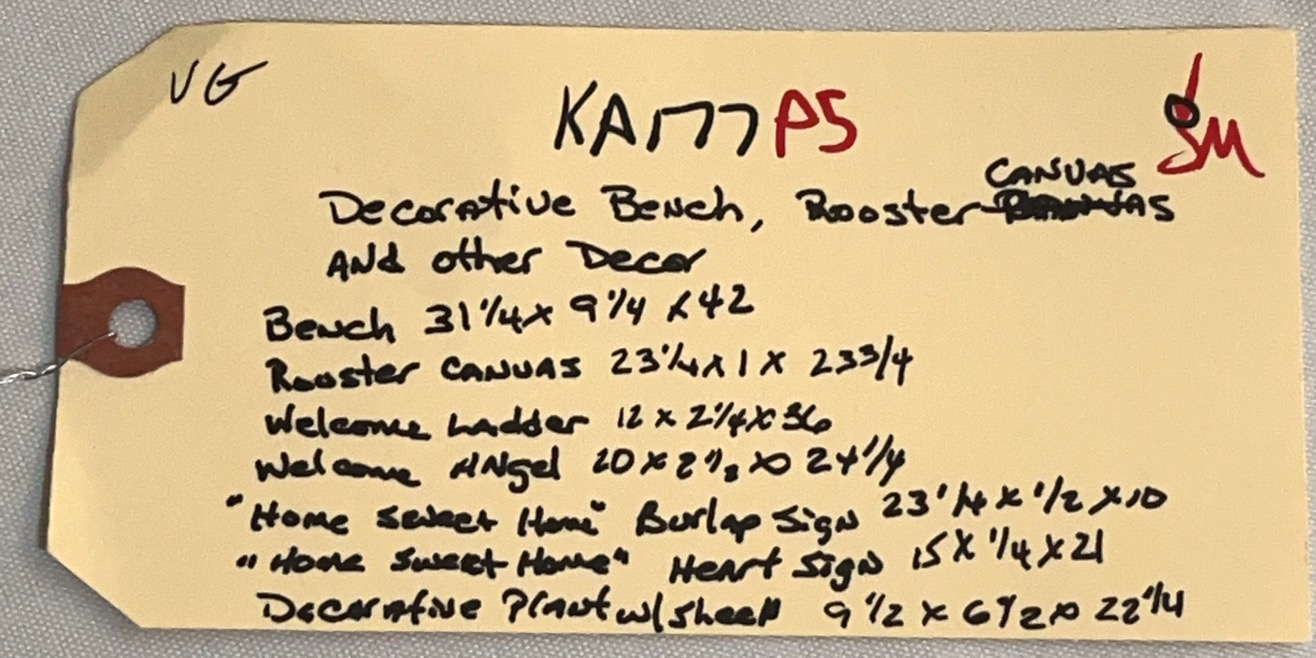 VG
KA177 P5
SM
CANVAS
Decorative Bench, Rooster
And other Decor
Bench 31 1/4 x 9 1/4 x 42
Rooster CANVAS 23 1/4 x 1 x 23 3/4
Welcome Ladder 12 x 2 1/4 x 36
Welcome ANgel 20 x 2 1/2 x 24 1/4
"Home Sweet Home" Burlap Sign 23 1/4 x 1/2 x 10
"Home Sweet Home" Heart Sign 15 x 1/4 x 21
Decorative Plant w/ Sheep 9 1/2 x 6 1/2 x 22 1/4